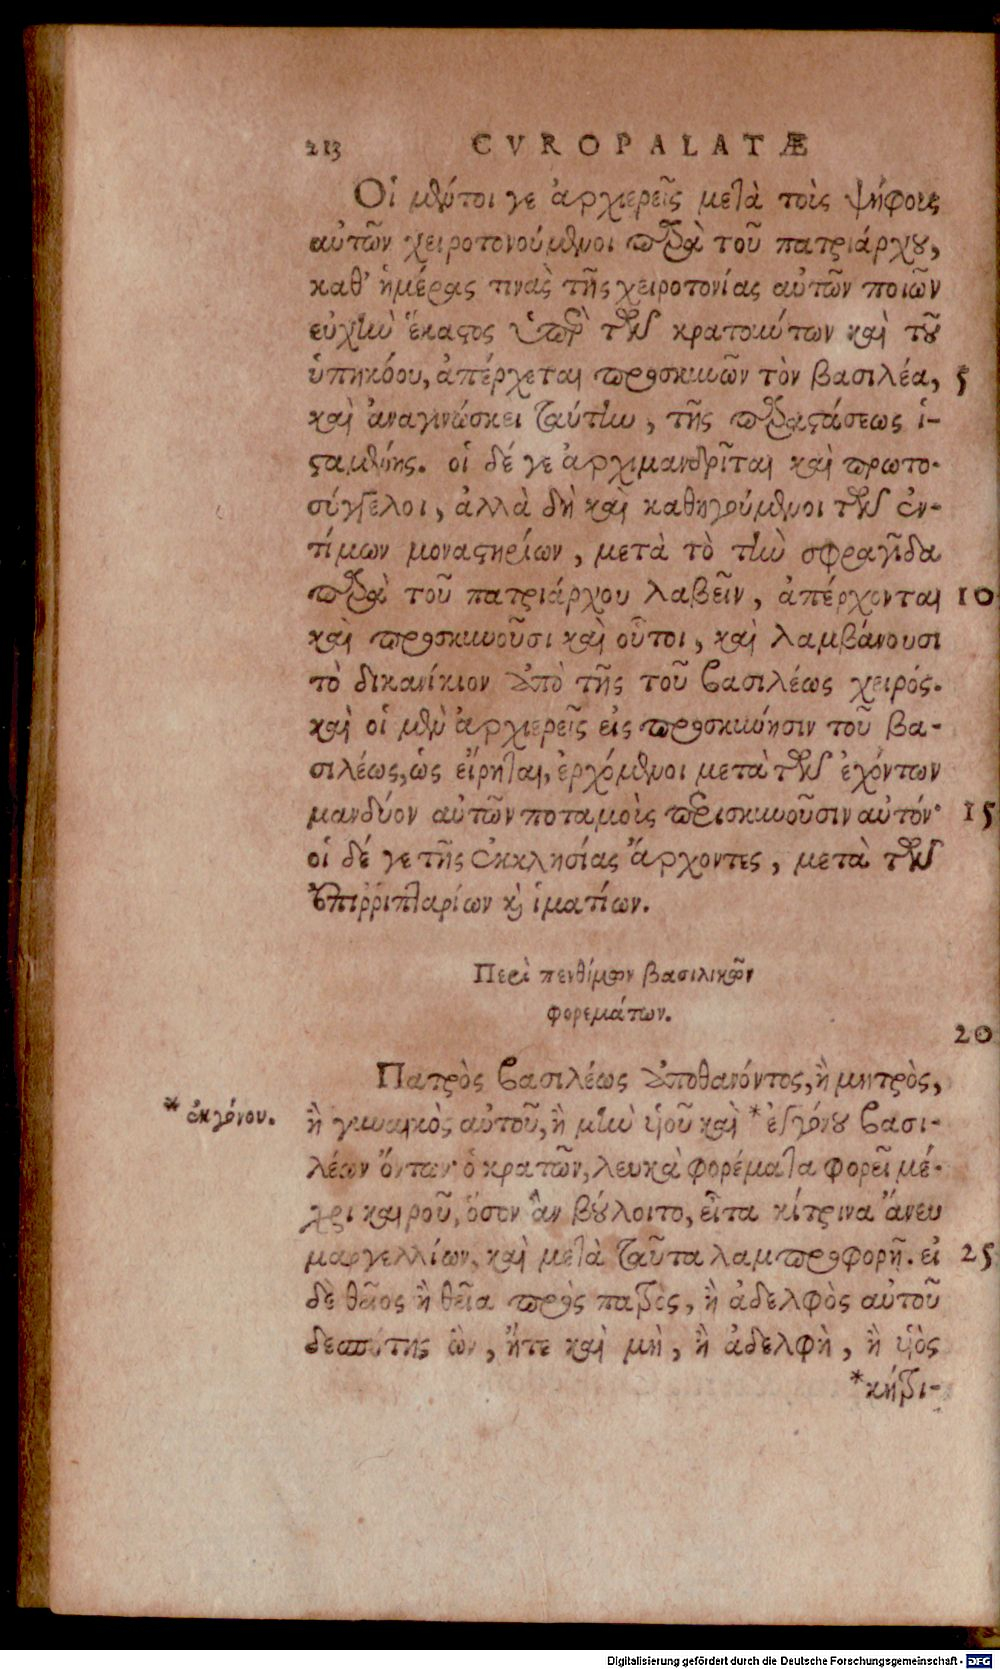 213 CVROPALATÆ
Οἱ μέντοι γε ἀρχιερεῖς μετὰ τοὶς ψήφους
αὐτῶν χειροτονούμενοι παρὰ τοῦ πατριάρχου,
καθ' ἡμέρας τινας τῆς χειροτονίας αὐτῶν ποιῶν
εὐχὴν ἕκαστος ὑπὲρ τῶν κρατούντων καὶ τοῦ
ὑπηκόου, ἀπέρχεται προσκυνῶν τὸν βασιλέα, 5
καὶ ἀναγινώσκει ταύτην, τῆς παραστάσεως ἱ-
σταμένης. οἱ δέ γε ἀρχιμανδρῖται καὶ πρωτο-
σύγγελοι, ἀλλὰ δὴ καὶ καθηγούμενοι τῶν ἐν-
τίμων μοναστηρίων, μετὰ τὸ τὴν σφραγῖδα
παρὰ τοῦ πατριάρχου λαβεῖν, ἀπέρχονται 10
καὶ προσκυνοῦσι καὶ οὗτοι, καὶ λαμβάνουσι
τὸ δικανίκιον ἀπὸ τῆς τοῦ βασιλέως χειρός.
καὶ οἱ μὲν ἀρχιερεῖς εἰς προσκύνησιν τοῦ βα-
σιλέως, ὡς εἴρηται, ἐρχόμενοι μετὰ τῶν ἐχόντων
μανδύον αὐτῶν ποταμοὶς προσκυνοῦσιν αὐτόν· 15
οἱ δέ γε τῆς ἐκκλησίας ἄρχοντες, μετὰ τῶν
ἐπιῤῥιπταρίων καὶ ἱματίων.
Περὶ πενθίμων βασιλικῶν
φορεμάτων.
20
Πατρὸς βασιλέως ἀποθανόντος, ἢ μητρὸς,
* ἐκγόνου.
ἢ γυναικὸς αὐτοῦ, ἢ μὴν υἱοῦ καὶ * ἐγγόνου βασι-
λέων ὄντων ὁ κρατῶν, λευκὰ φορέματα φορεῖ μέ-
χρι καιροῦ, ὅσον ἂν βούλοιτο, εἶτα κίτρινα ἄνευ
μαργελλίων, καὶ μετὰ ταῦτα λαμπροφορῇ. εἰ 25
δὲ θεῖος ἢ θεία πρὸς πατρὸς, ἢ ἀδελφὸς αὐτοῦ
δεσπότης ὢν, ἤτε καὶ μὴ, ἢ ἀδελφὴ, ἢ υἱὸς
Digitalisierung gefördert durch die Deutsche Forschungsgemeinschaft - DFG